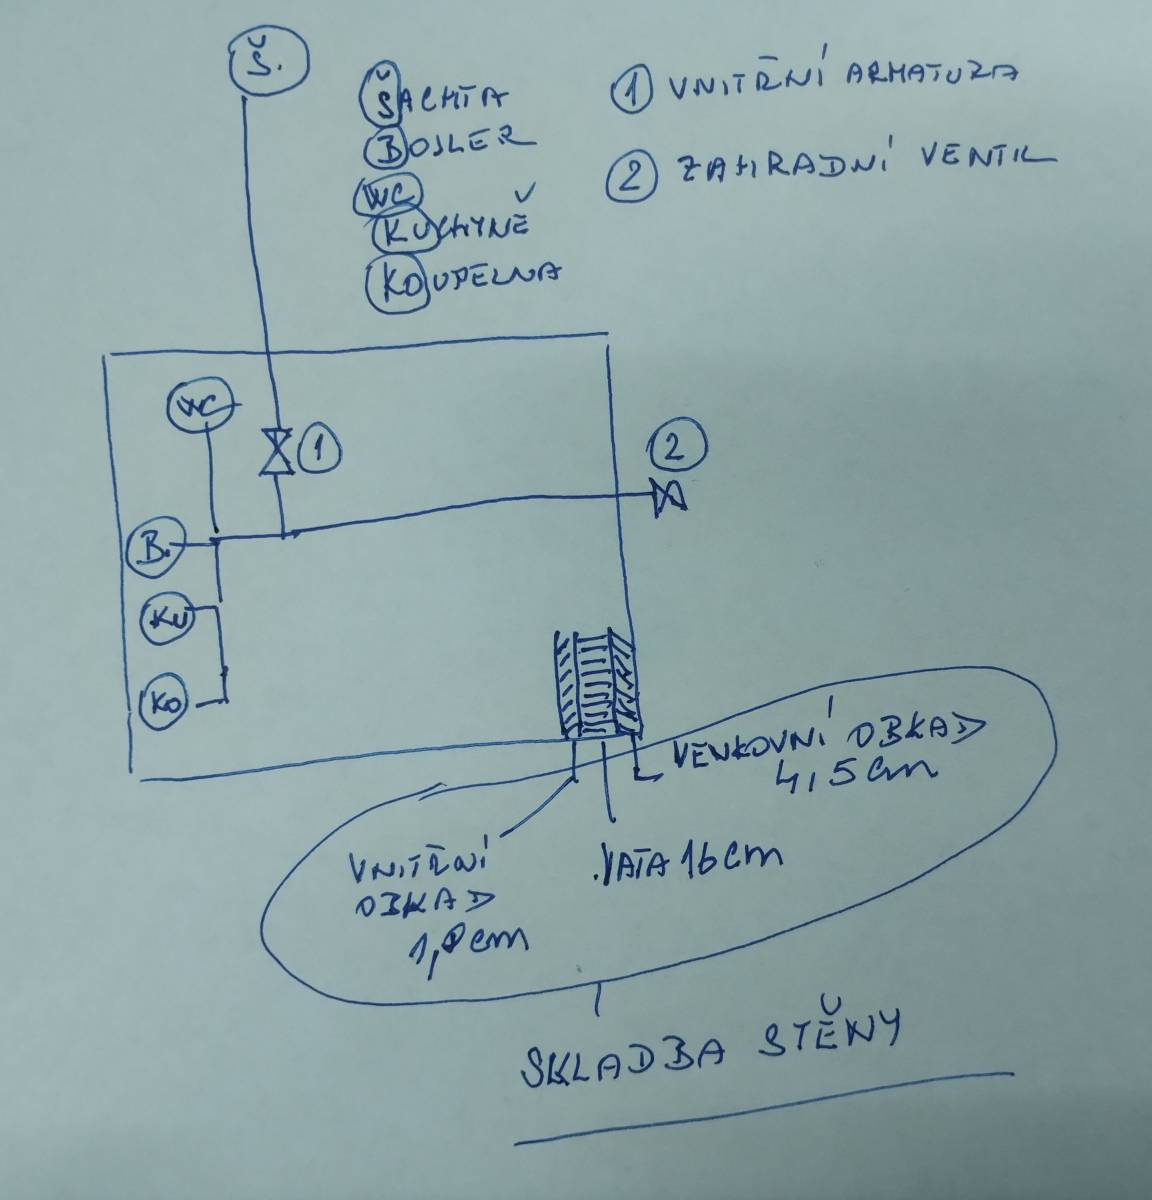 Š.
ŠACHTA
BOJLER
WC
KUCHYNĚ
KOUPELNA
1 VNITŘNÍ ARMATURA
2 ZAHRADNÍ VENTIL
WC
1
2
B.
KU
KO
VENKOVNÍ OBKAD
4,5cm
VATA 16cm
VNITŘNÍ
OBKAD
cm
SKLADBA STĚNY